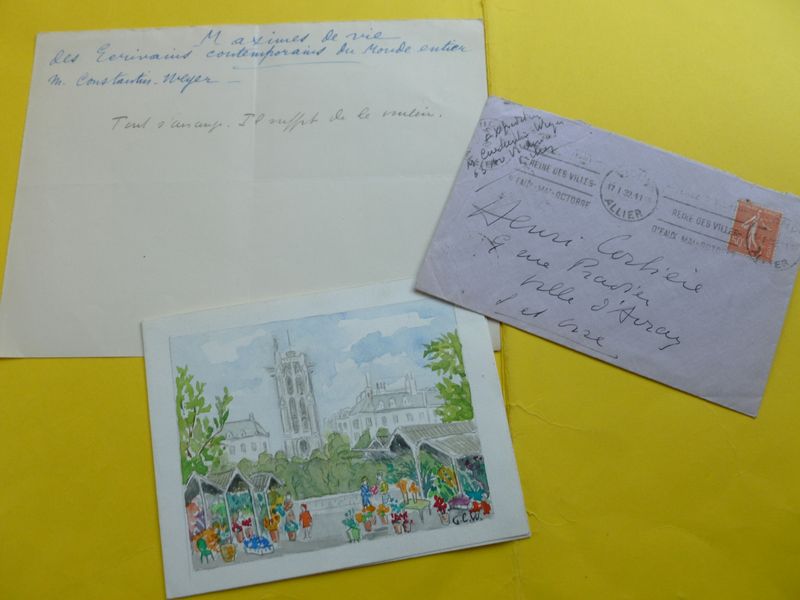 Maximes de vie
des Ecrivains contemporains du Monde entier
M. Constantin-Weyer
Tout s'arrange. Il suffit de le vouloir.
Constantin-Weyer
REINE DES VILLES
D'EAUX-MAI-OCTOBRE
ALLIER
REINE DES VILLES
D'EAUX MAI-OCTOBRE
50
Henri Corbière
9 rue Pradier
Ville d'Avray
S et Oise
G.C.W.